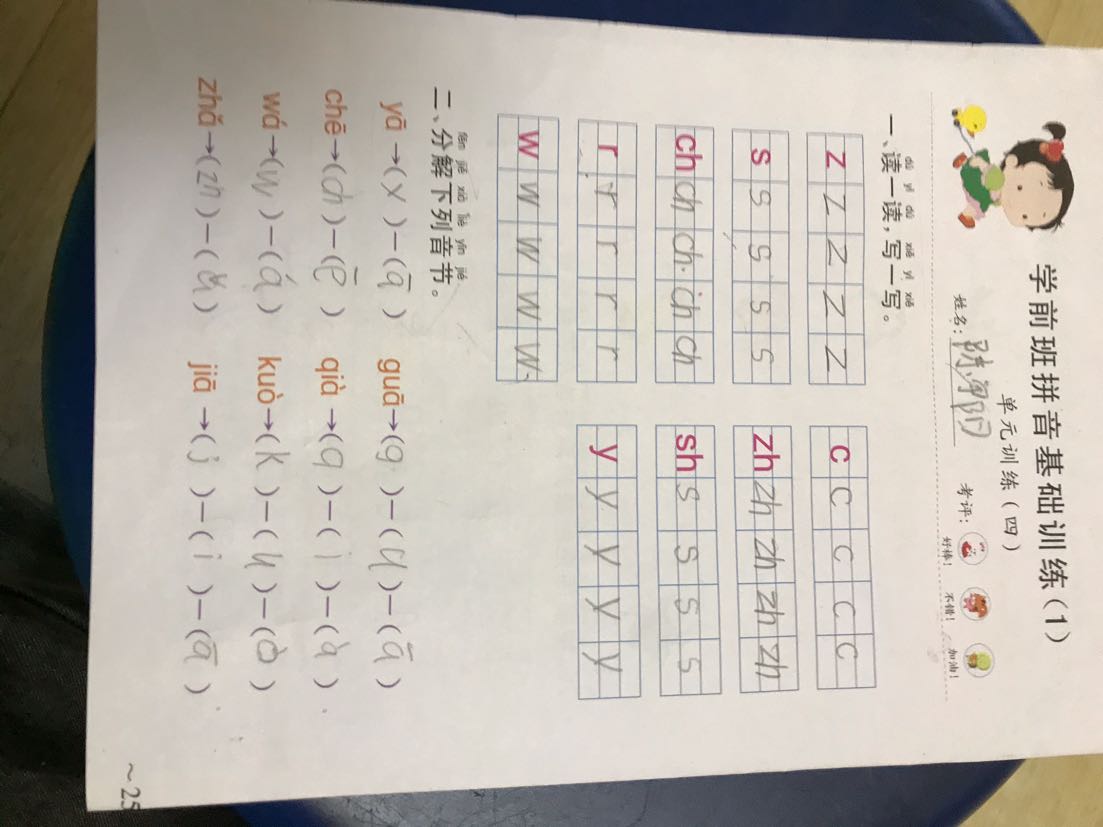 学前班拼音基础训练(1)
单元训练(四)
姓名: 考评: 好棒! 不错! 加油!
dú yì dú xiě yì xiě
一、读一读,写一写。
z z z z z c c c c c
s s s s s zh zh zh zh zh
ch ch ch ch ch sh s s s s
r r r r r y y y y y
w w w w w
fēn jiě xià liè yīn jié
二、分解下列音节。
yā→(y)-(ā) guā→(g)-(u)-(ā)
chē→(ch)-(ē) qià→(q)-(i)-(à)
wá→(w)-(á) kuò→(k)-(u)-(ò)
zhǎ→(zh)-(ǎ) jiā→(j)-(i)-(ā)
~25